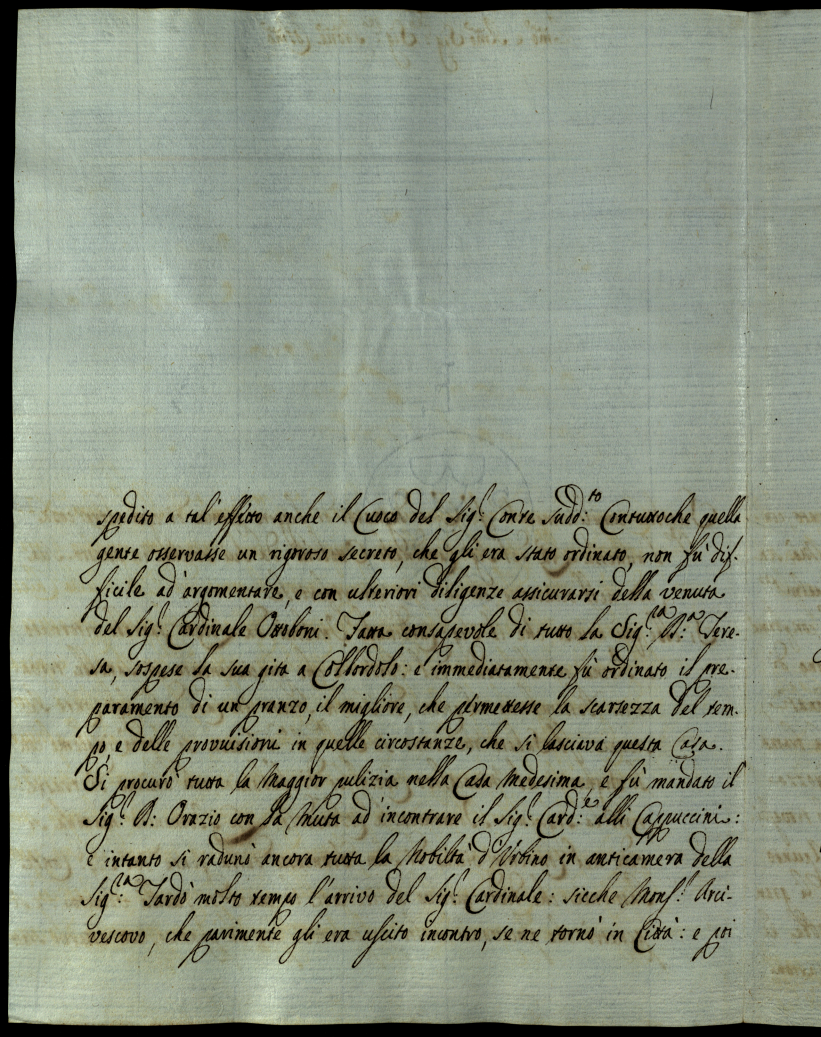 spedito a tal'effetto anche il Cuoco del Sig.r Conte Sudd.to Contuttoche quella
gente osservasse un rigoroso secreto, che gli era stato ordinato, non fù dif-
ficile ad'argomentare, e con ulteriori diligenze assicurarsi della venuta
del Sig.r Cardinale Ottoboni. Fatta consapevole di tutto la Sig.ra D.a Tere-
sa, sospese la sua gita a Colbordolo: e immediatamente fù ordinato il pre-
paramento di un pranzo, il migliore, che permettesse la scarsezza del tem-
po, e delle provuisioni in quelle circostanze, che si lasciava questa Casa.
Si procurò tutta la Maggior pulizia nella Casa Medesima, e fù mandato il
Sig.r D: Orazio con la Muta ad'incontrare il Sig.r Card.e alli Cappuccini:
e intanto si radunò ancora tutta la Nobiltà d'Urbino in anticamera della
Sig.ra Tardò molto tempo l'arrivo del Sig.r Cardinale: sicche Mons.r Arci-
vescovo, che parimente gli era uscito incontro, se ne tornò in Città: e poi